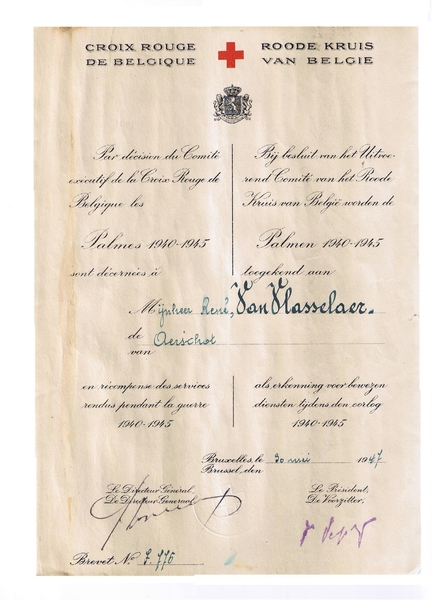 CROIX ROUGE
DE BELGIQUE
ROODE KRUIS
VAN BELGIE
Par décision du Comité
exécutif de la Croix Rouge de
Belgique les
Palmes 1940-1945
sont décernées à
Bij besluit van het Uitvoe-
rend Comité van het Roode
Kruis van België worden de
Palmen 1940-1945
toegekend aan
Mijnheer René, Van Vlasselaer.
de
van
Aerschot
en récompense des services
rendus pendant la guerre
1940-1945
als erkenning voor bewezen
diensten tijdens den oorlog
1940-1945
Bruxelles, le 30 mei 1947
Brussel, den
Le Directeur Général,
De Directeur Generaal,
Le Président,
De Voorzitter,
Brevet No 7.776